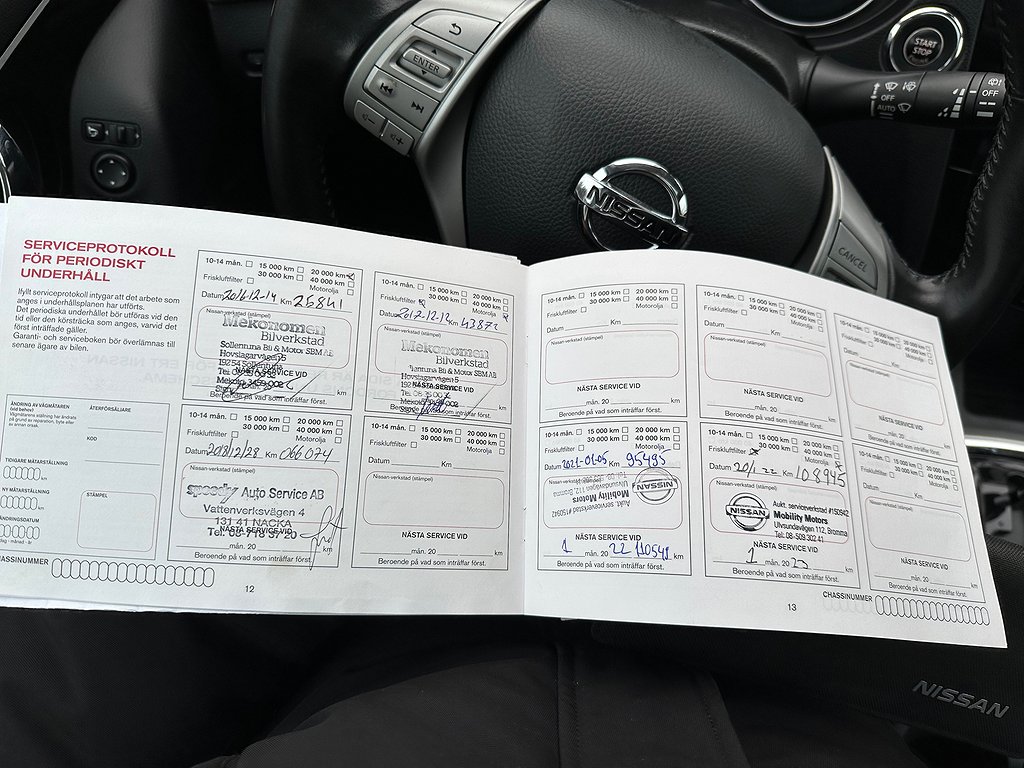 ENTER
START
STOP
OFF
AUTO
OFF
NISSAN
CANCEL
SERVICEPROTOKOLL
FÖR PERIODISKT
UNDERHÅLL
Ifyllt serviceprotokoll intygar att det arbete som
anges i underhållsplanen har utförts.
Det periodiska underhållet bör utföras vid den
tid eller den körsträcka som anges, varvid det
först inträffade gäller.
Garanti- och serviceboken bör överlämnas till
senare ägare av bilen.
ÄNDRING AV VÄGMÄTAREN
(vid behov)
ÅTERFÖRSÄLJARE
KOD
TIDIGARE MÄTARSTÄLLNING
NY MÄTARSTÄLLNING
STÄMPEL
ÄNDRINGSDATUM
CHASSINUMMER
10-14 mån. 15 000 km 20 000 km
30 000 km 40 000 km
Friskluftfilter Motorolja
Datum 2016-12-14 Km 25841
Nissan-verkstad (stämpel)
Mekonomen
Bilverkstad
Sollentuna Bil & Motor SBM AB
Hovslagarvägen 5
19254 Sollentuna
NÄSTA SERVICE VID
mån. 20 km
Beroende på vad som inträffar först.
10-14 mån. 15 000 km 20 000 km
30 000 km 40 000 km
Friskluftfilter Motorolja
Datum 2017-12-12 Km 43872
Nissan-verkstad (stämpel)
Mekonomen
Bilverkstad
Sollentuna Bil & Motor SBM AB
Hovslagarvägen 5
NÄSTA SERVICE VID
km
Beroende på vad som inträffar först.
10-14 mån. 15 000 km 20 000 km
30 000 km 40 000 km
Friskluftfilter Motorolja
Datum 2018/12/28 Km 066074
Nissan-verkstad (stämpel)
speedy Auto Service AB
Vattenverksvägen 4
131 41 NACKA
Tel. 08-718 37 20
NÄSTA SERVICE VID
mån. 20 km
Beroende på vad som inträffar först.
10-14 mån. 15 000 km 20 000 km
30 000 km 40 000 km
Friskluftfilter Motorolja
Datum Km
Nissan-verkstad (stämpel)
NÄSTA SERVICE VID
mån. 20 km
Beroende på vad som inträffar först.
12
10-14 mån. 15 000 km 20 000 km
30 000 km 40 000 km
Friskluftfilter Motorolja
Datum Km
Nissan-verkstad (stämpel)
NÄSTA SERVICE VID
mån. 20 km
Beroende på vad som inträffar först.
10-14 mån. 15 000 km 20 000 km
30 000 km 40 000 km
Friskluftfilter Motorolja
Datum Km
Nissan-verkstad (stämpel)
NÄSTA SERVICE VID
mån. 20 km
Beroende på vad som inträffar först.
10-14 mån. 15 000 km
30 000 km
Friskluftfilter Motorolja
Datum Km
Nissan-verkstad (stämpel)
NÄSTA SERVICE VID
mån. 20 km
Beroende på vad som inträffar först.
10-14 mån. 15 000 km 20 000 km
30 000 km 40 000 km
Friskluftfilter Motorolja
Datum 2021-01-05 Km 95495
Nissan-verkstad (stämpel)
NISSAN
Aukt. serviceverkstad #150942
Mobility Motors
Ulvsundavägen 112, Bromma
NÄSTA SERVICE VID
1 mån. 20 22 110541 km
Beroende på vad som inträffar först.
10-14 mån. 15 000 km 20 000 km
30 000 km 40 000 km
Friskluftfilter Motorolja
Datum 20/1 22 Km 108945
Nissan-verkstad (stämpel)
NISSAN
Aukt. serviceverkstad #150942
Mobility Motors
Ulvsundavägen 112, Bromma
Tel: 08-509 302 41
NÄSTA SERVICE VID
1 mån. 20 23 km
Beroende på vad som inträffar först.
10-14 mån. 15 000 km 20 000 km
30 000 km 40 000 km
Friskluftfilter Motorolja
Datum Km
Nissan-verkstad (stämpel)
NÄSTA SERVICE VID
mån. 20 km
Beroende på vad som inträffar först.
13
CHASSINUMMER
NISSAN